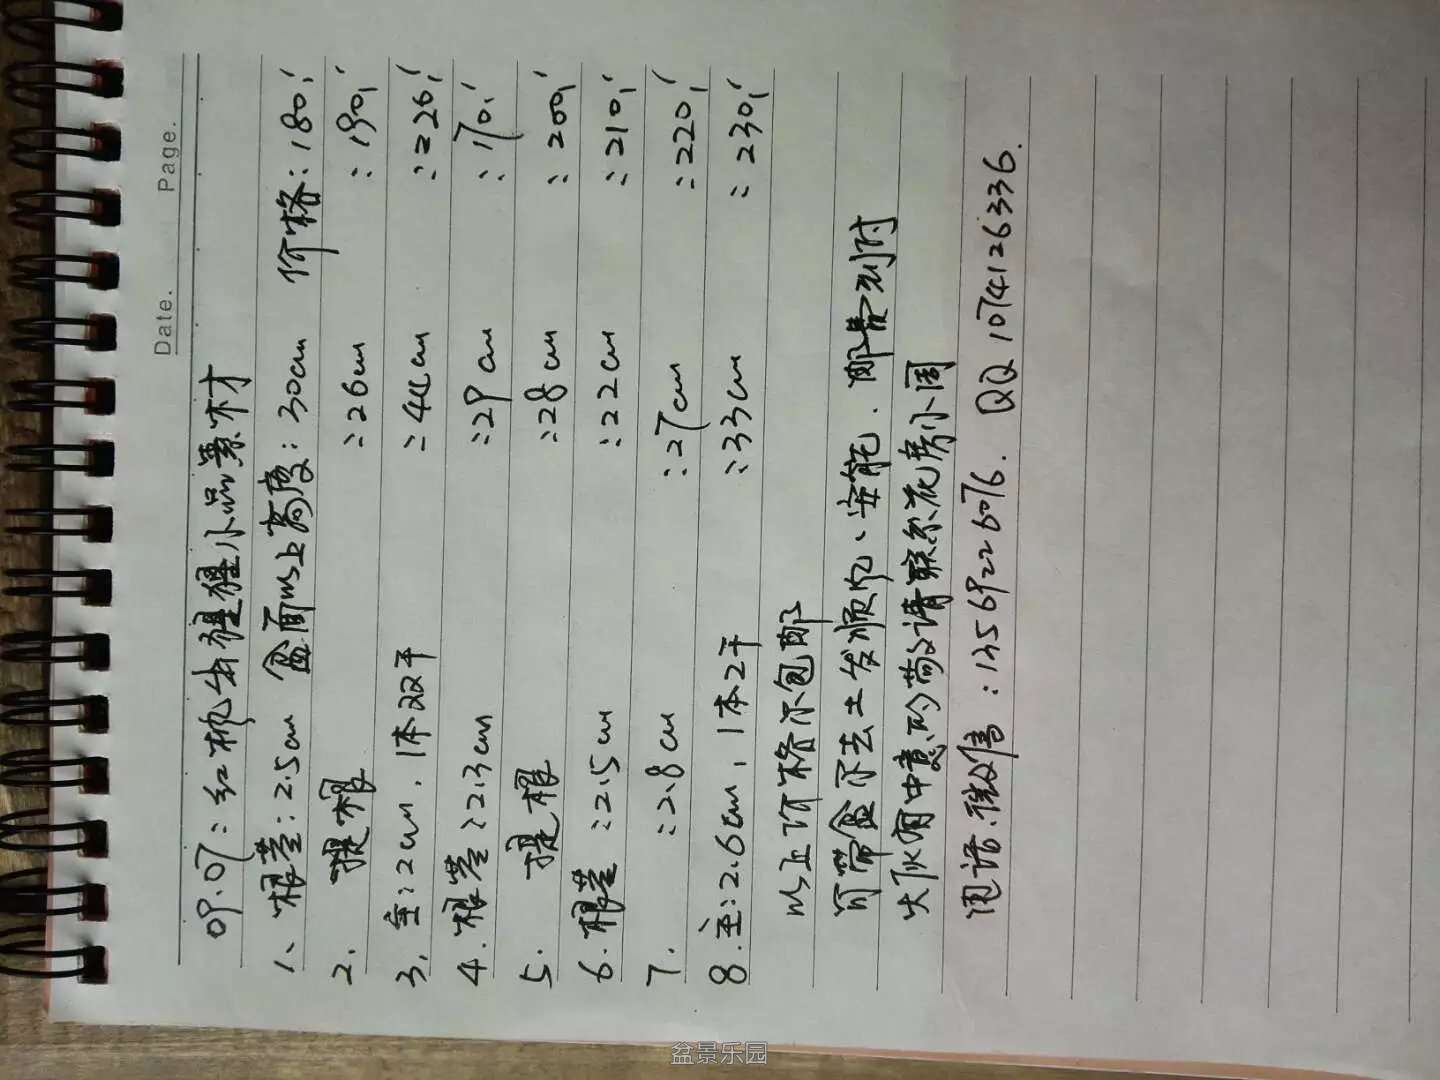 Date. Page.
09.07：红枫出猩猩小品素材
1、根茎：2.5cm 盆面以上高度：30cm 价格：180,
2. 提根 ：26cm ：190,
3. 主：2cm，1本双干 ：44cm ：220,
4. 根茎：2.3cm ：29cm ：170,
5. 提根 ：28cm ：200,
6. 根茎：2.5cm ：22cm ：210,
7. ：2.8cm ：27cm ：220,
8. 主：2.6cm，1本2干 ：33cm ：230,
以上价格不包邮
可带盆不去土发顺心、安能．邮费到付
大伙有中意的劳请联系花房小周
电话.微信：13569226076. QQ 1074126336.
盆景乐园